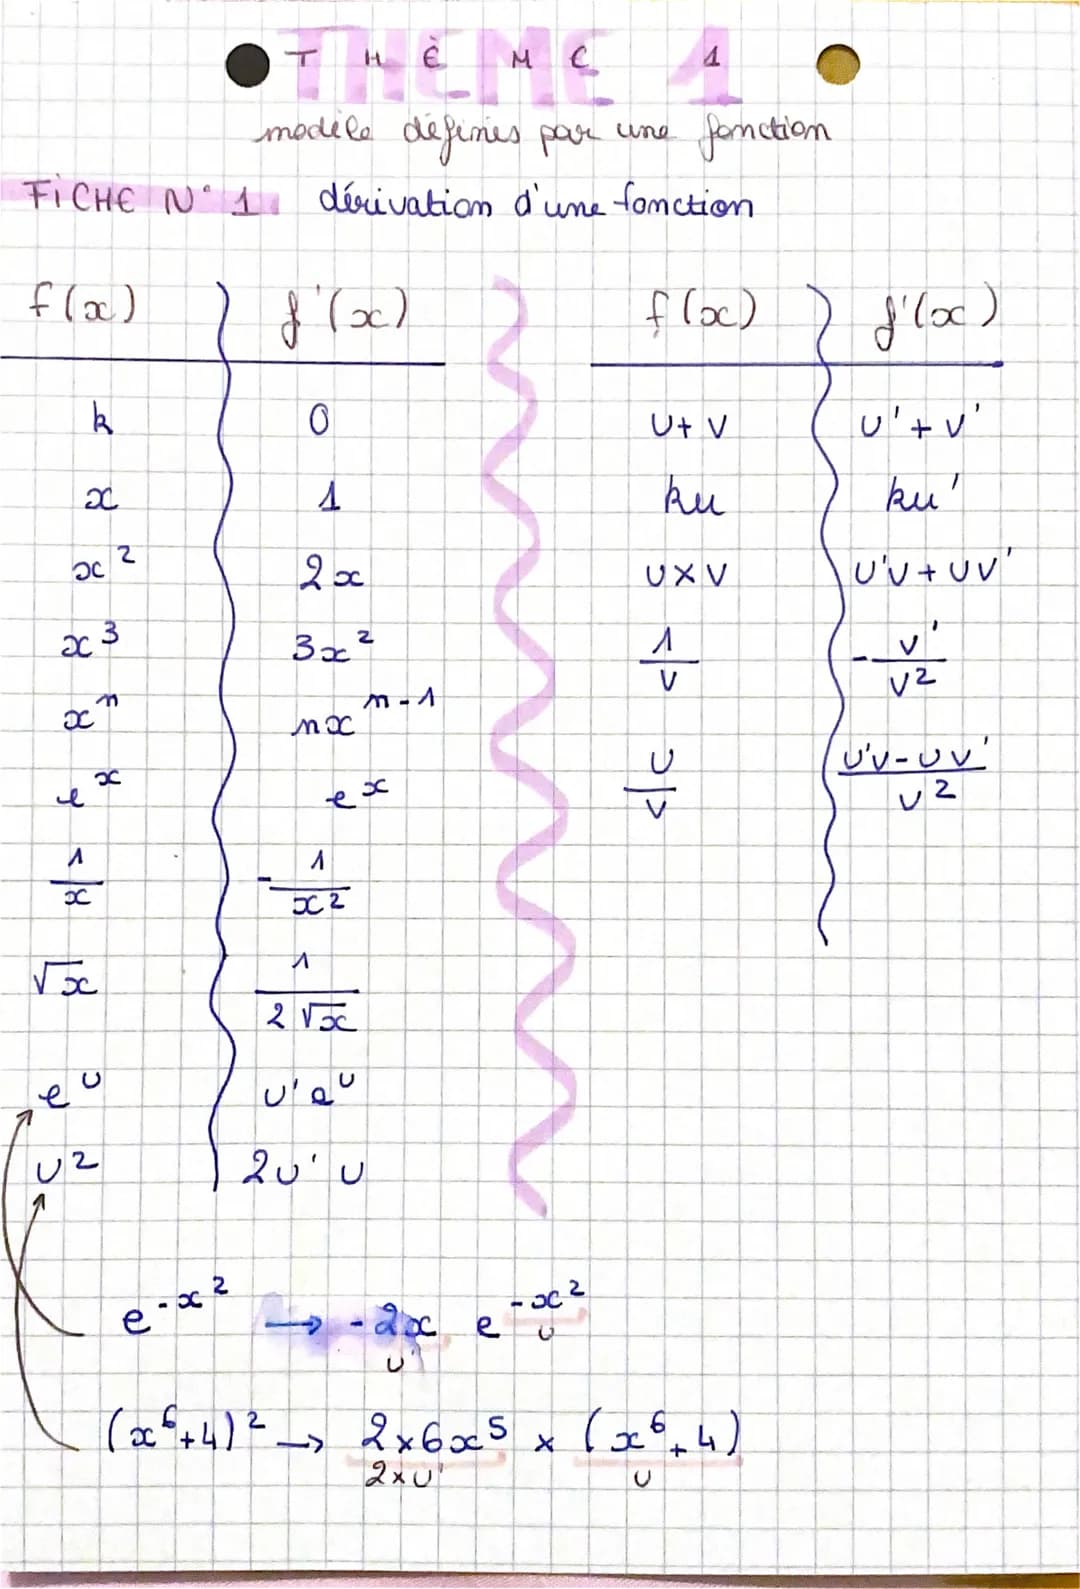 THÈME 1
modèle définies par une fonction
FICHE N° 1 dérivation d'une fonction
f(x) f'(x)
k 0
x 1
x² 2x
x³ 3x²
xⁿ nxⁿ⁻¹
eˣ eˣ
1/x -1/x²
√x 1/(2√x)
e^U U'e^U
U² 2U'U
f(x) f'(x)
U+V U'+V'
ku ku'
U×V U'V+UV'
1/V -V'/V²
U/V (U'V-UV')/V²
e^(-x²) → -2x e^(-x²)
U' U
(x⁶+4)² → 2×6x⁵ × (x⁶+4)
2×U' U